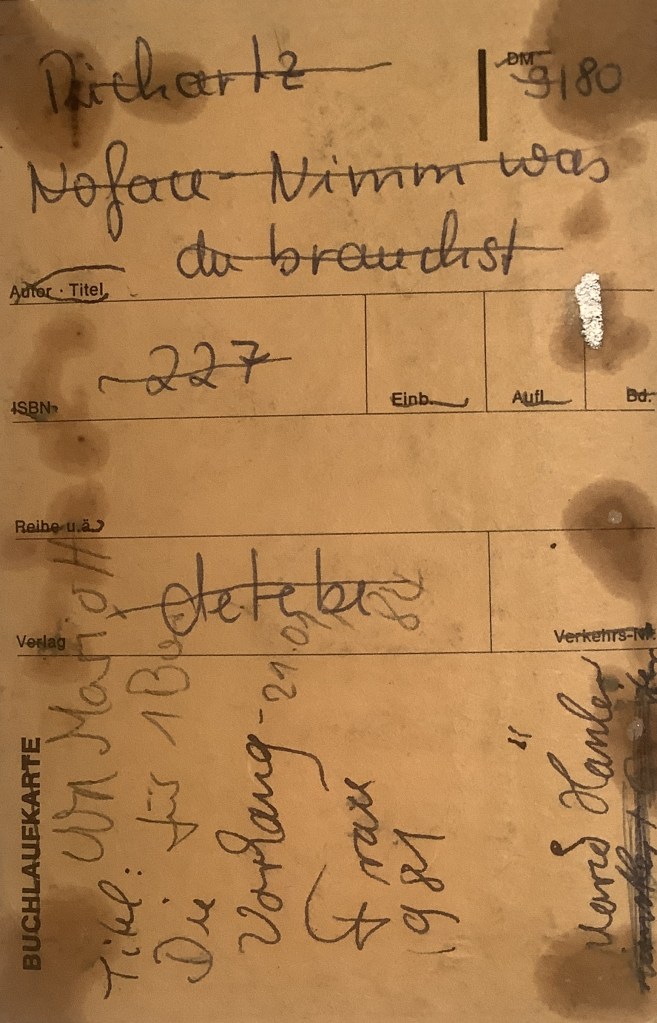 Richartz
DM
9180
Noface - Nimm was
du brauchst
Autor · Titel
~227
ISBN
Einb.
Aufl.
Bd.
Reihe u.ä.
detebe
Verlag
Verkehrs-Nr.
BUCHLAUFKARTE
Titel: Mario
Die für 1
Vorhang - 21.01.
Frau
1981